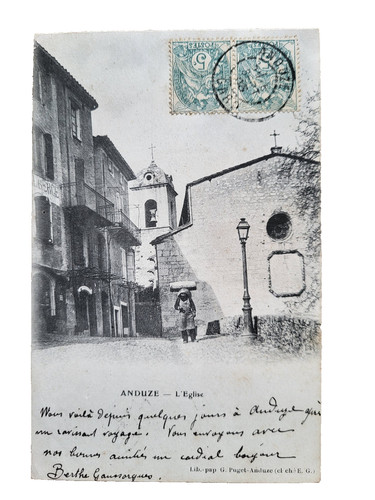 5
5
ANDUZE
ANDUZE — L'Eglise
Nous voilà depuis quelques jours à Anduze
un ravissant voyage. Nous envoyons avec
nos bonnes amitiés un cordial bonjour
Berthe Gaussorgues
Lib.-pap G. Puget-Anduze (cl ch! E. G.)